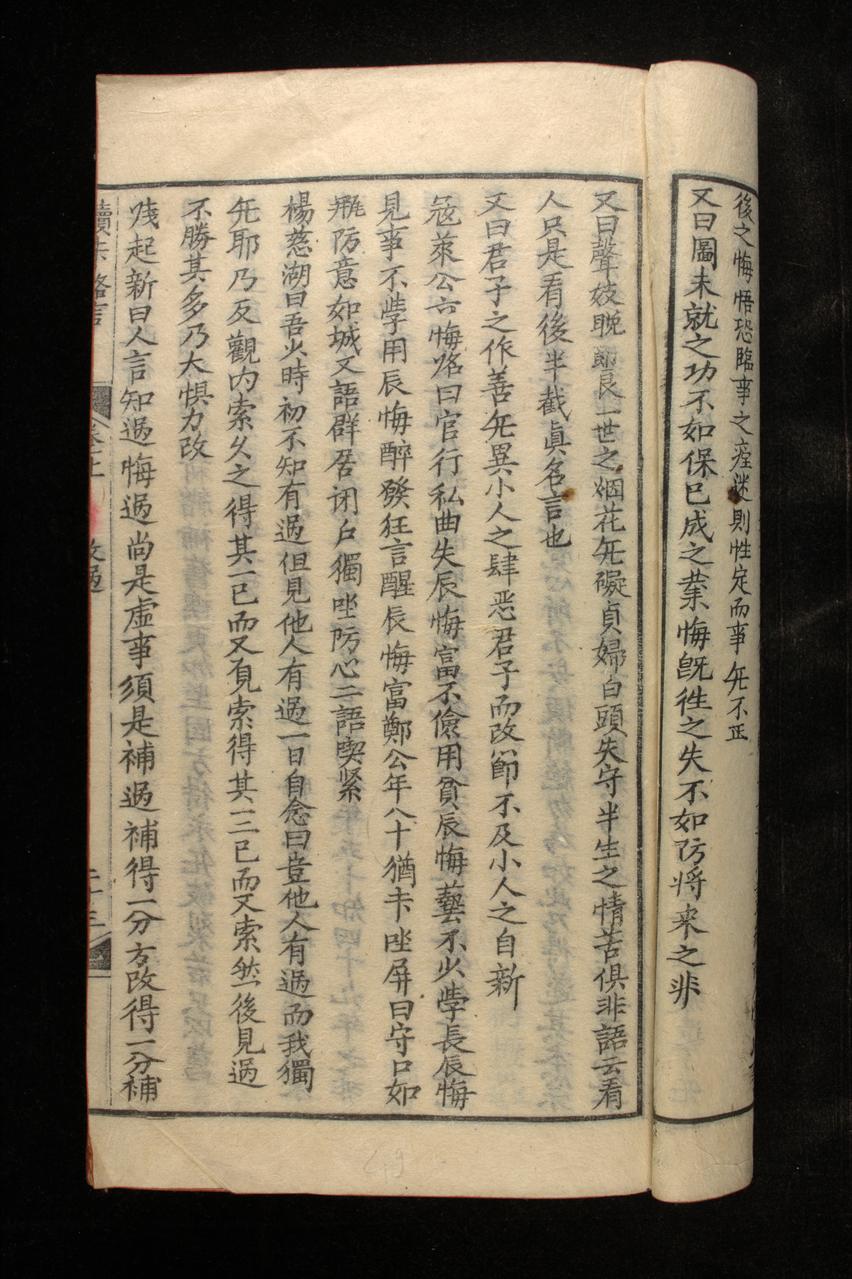 後之悔悟恐臨事之痴迷則性定而事无不正
又曰圖未就之功不如保已成之業悔旣徃之失不如防将来之非
又曰聲妓晚節良一世之烟花无礙貞婦白頭失守半生之情苦俱非語云看
人只是看後半截眞名言也
又曰君子之作善无異小人之肆恶君子而改節不及小人之自新
宼萊公六悔略曰官行私曲失辰悔富不儉用貧辰悔藝不少學長辰悔
見事不學用辰悔醉發狂言醒辰悔富鄭公年八十猶书坐屏曰守口如
甁防意如城又語群居闭户獨坐防心二語喫紧
楊慈湖曰吾少時初不知有過但見他人有過一日自念曰豈他人有過而我獨
无耶乃反觀内索久之得其一已而又覓索得其二三已而又索然後見過
不勝其多乃大惧力改
钱起新曰人言知過悔過尚是虚事須是補過補得一分方改得一分補
讀书略言 卷上 改過 二十三